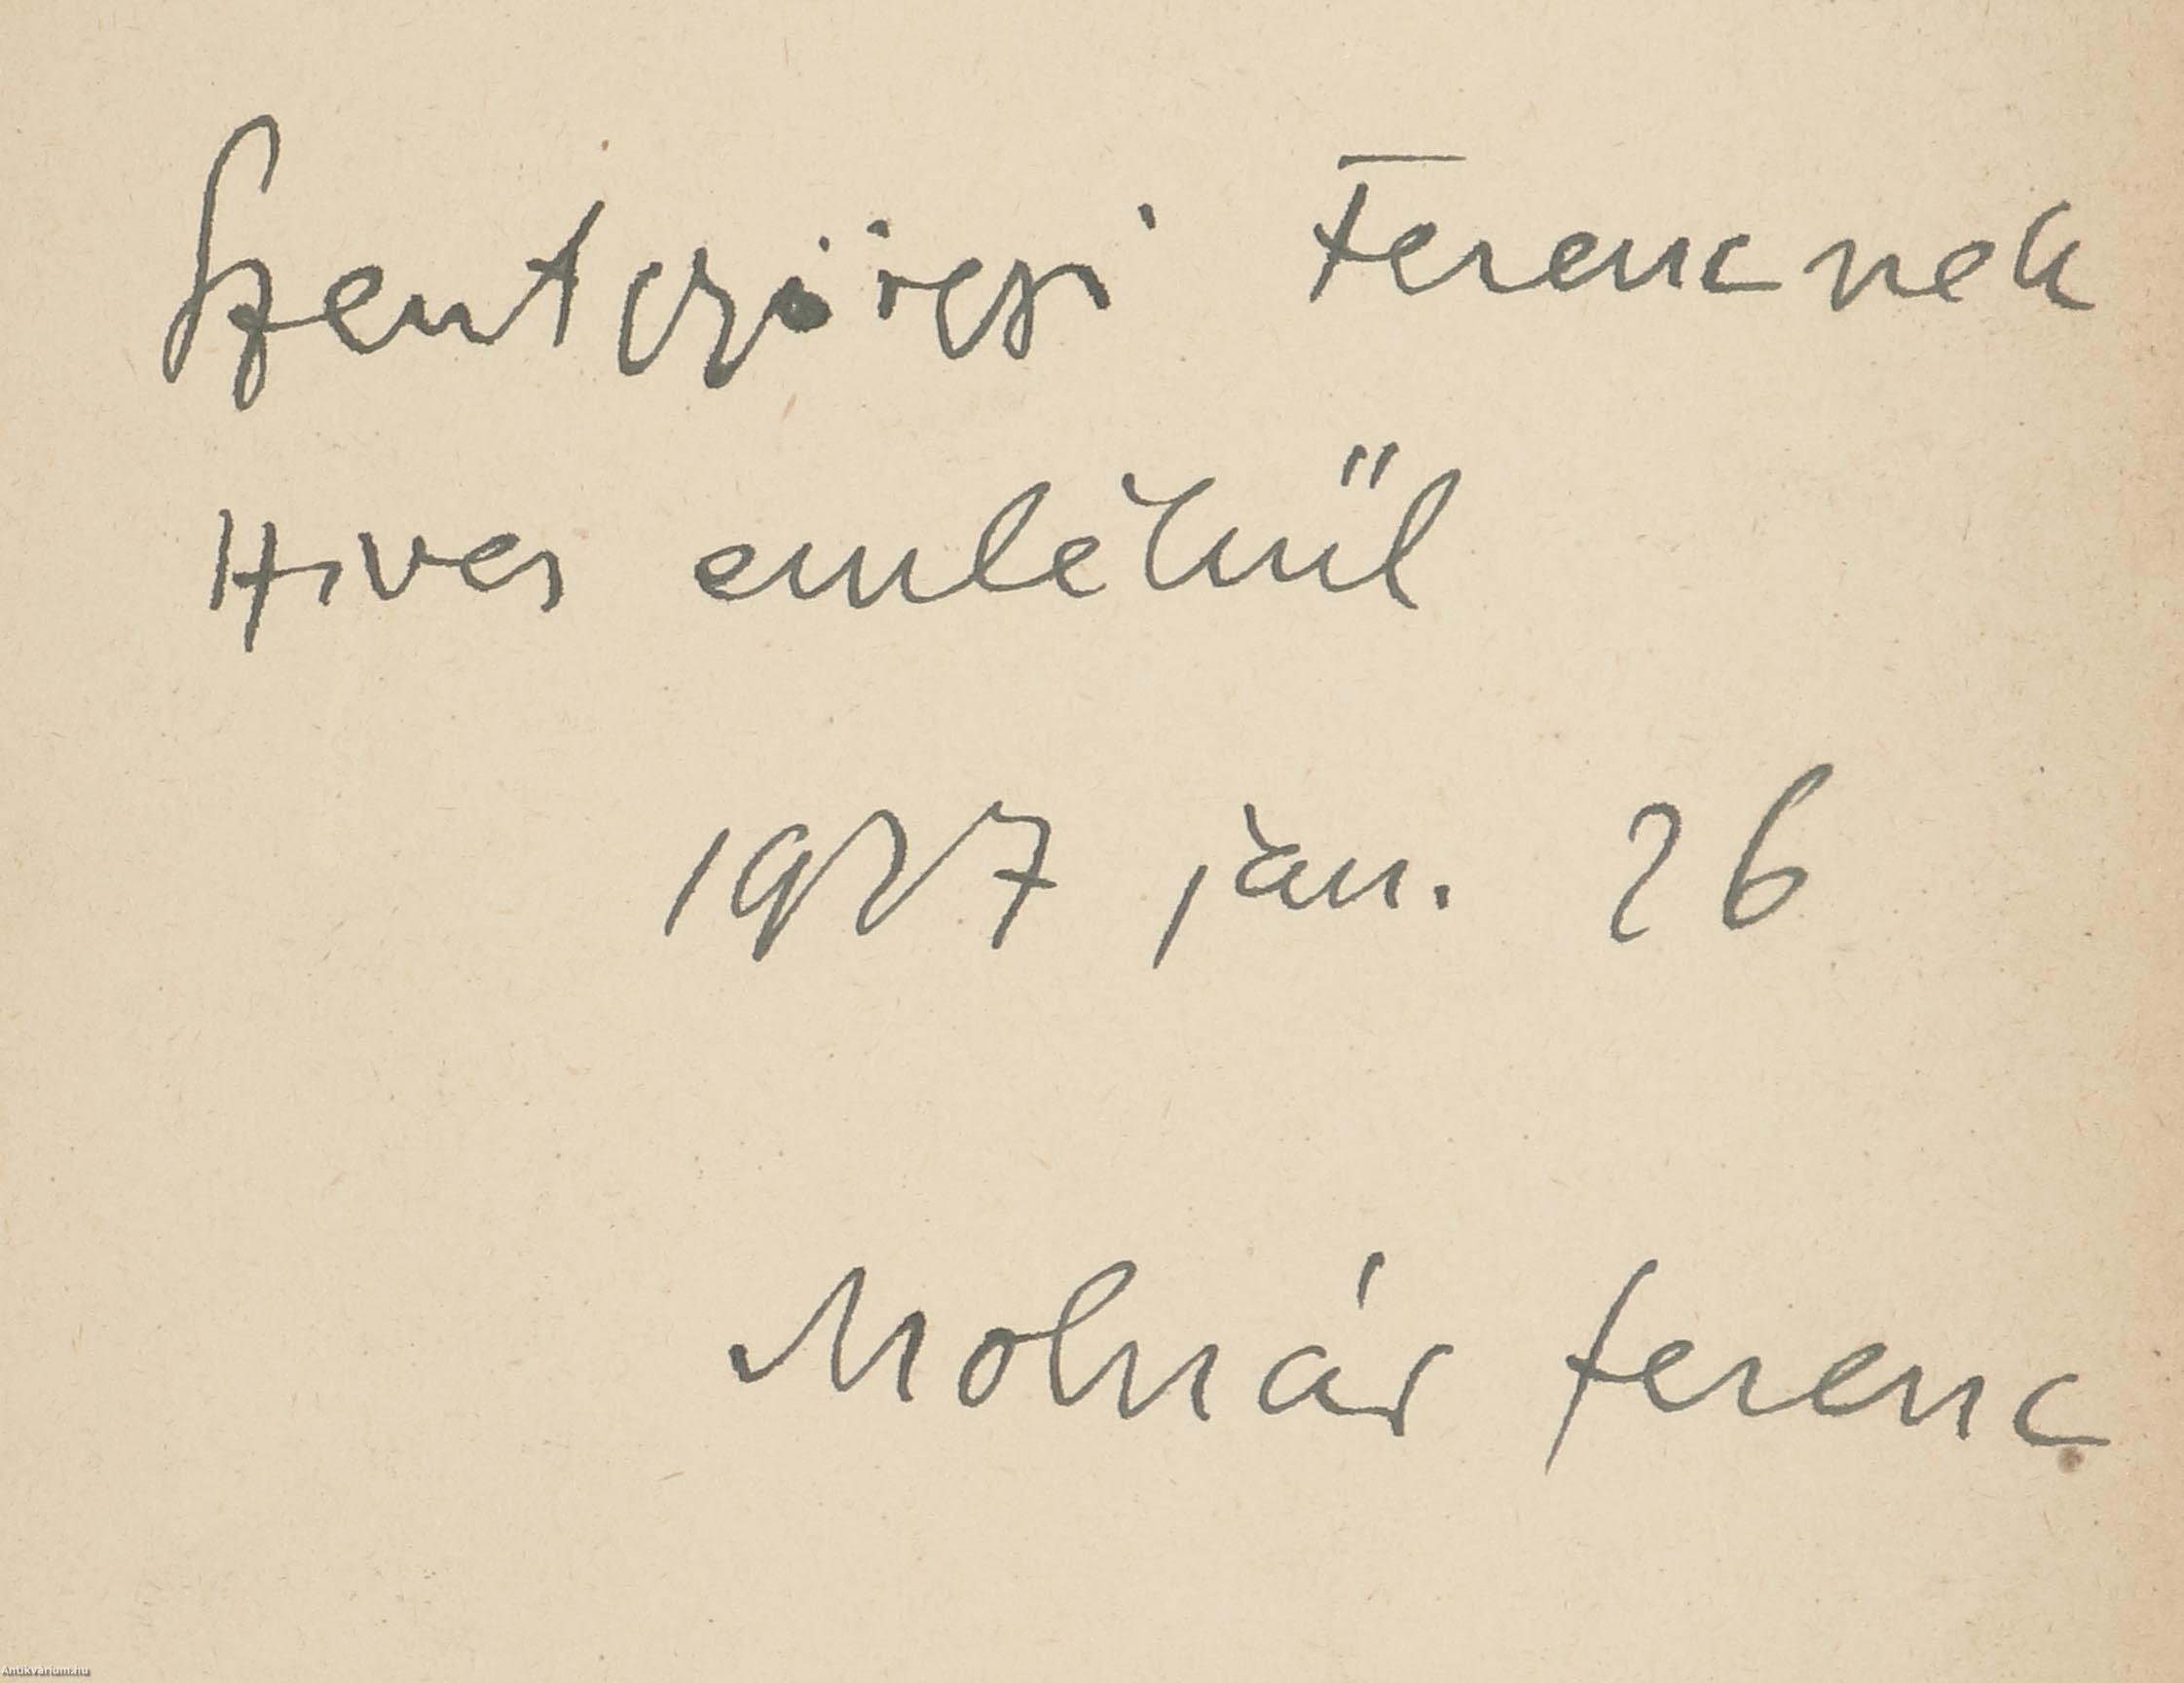 Szentgyörgyi Ferencnek
Hives emlékül
1927 jan. 26
Molnár Ferenc
Antikvarium.hu